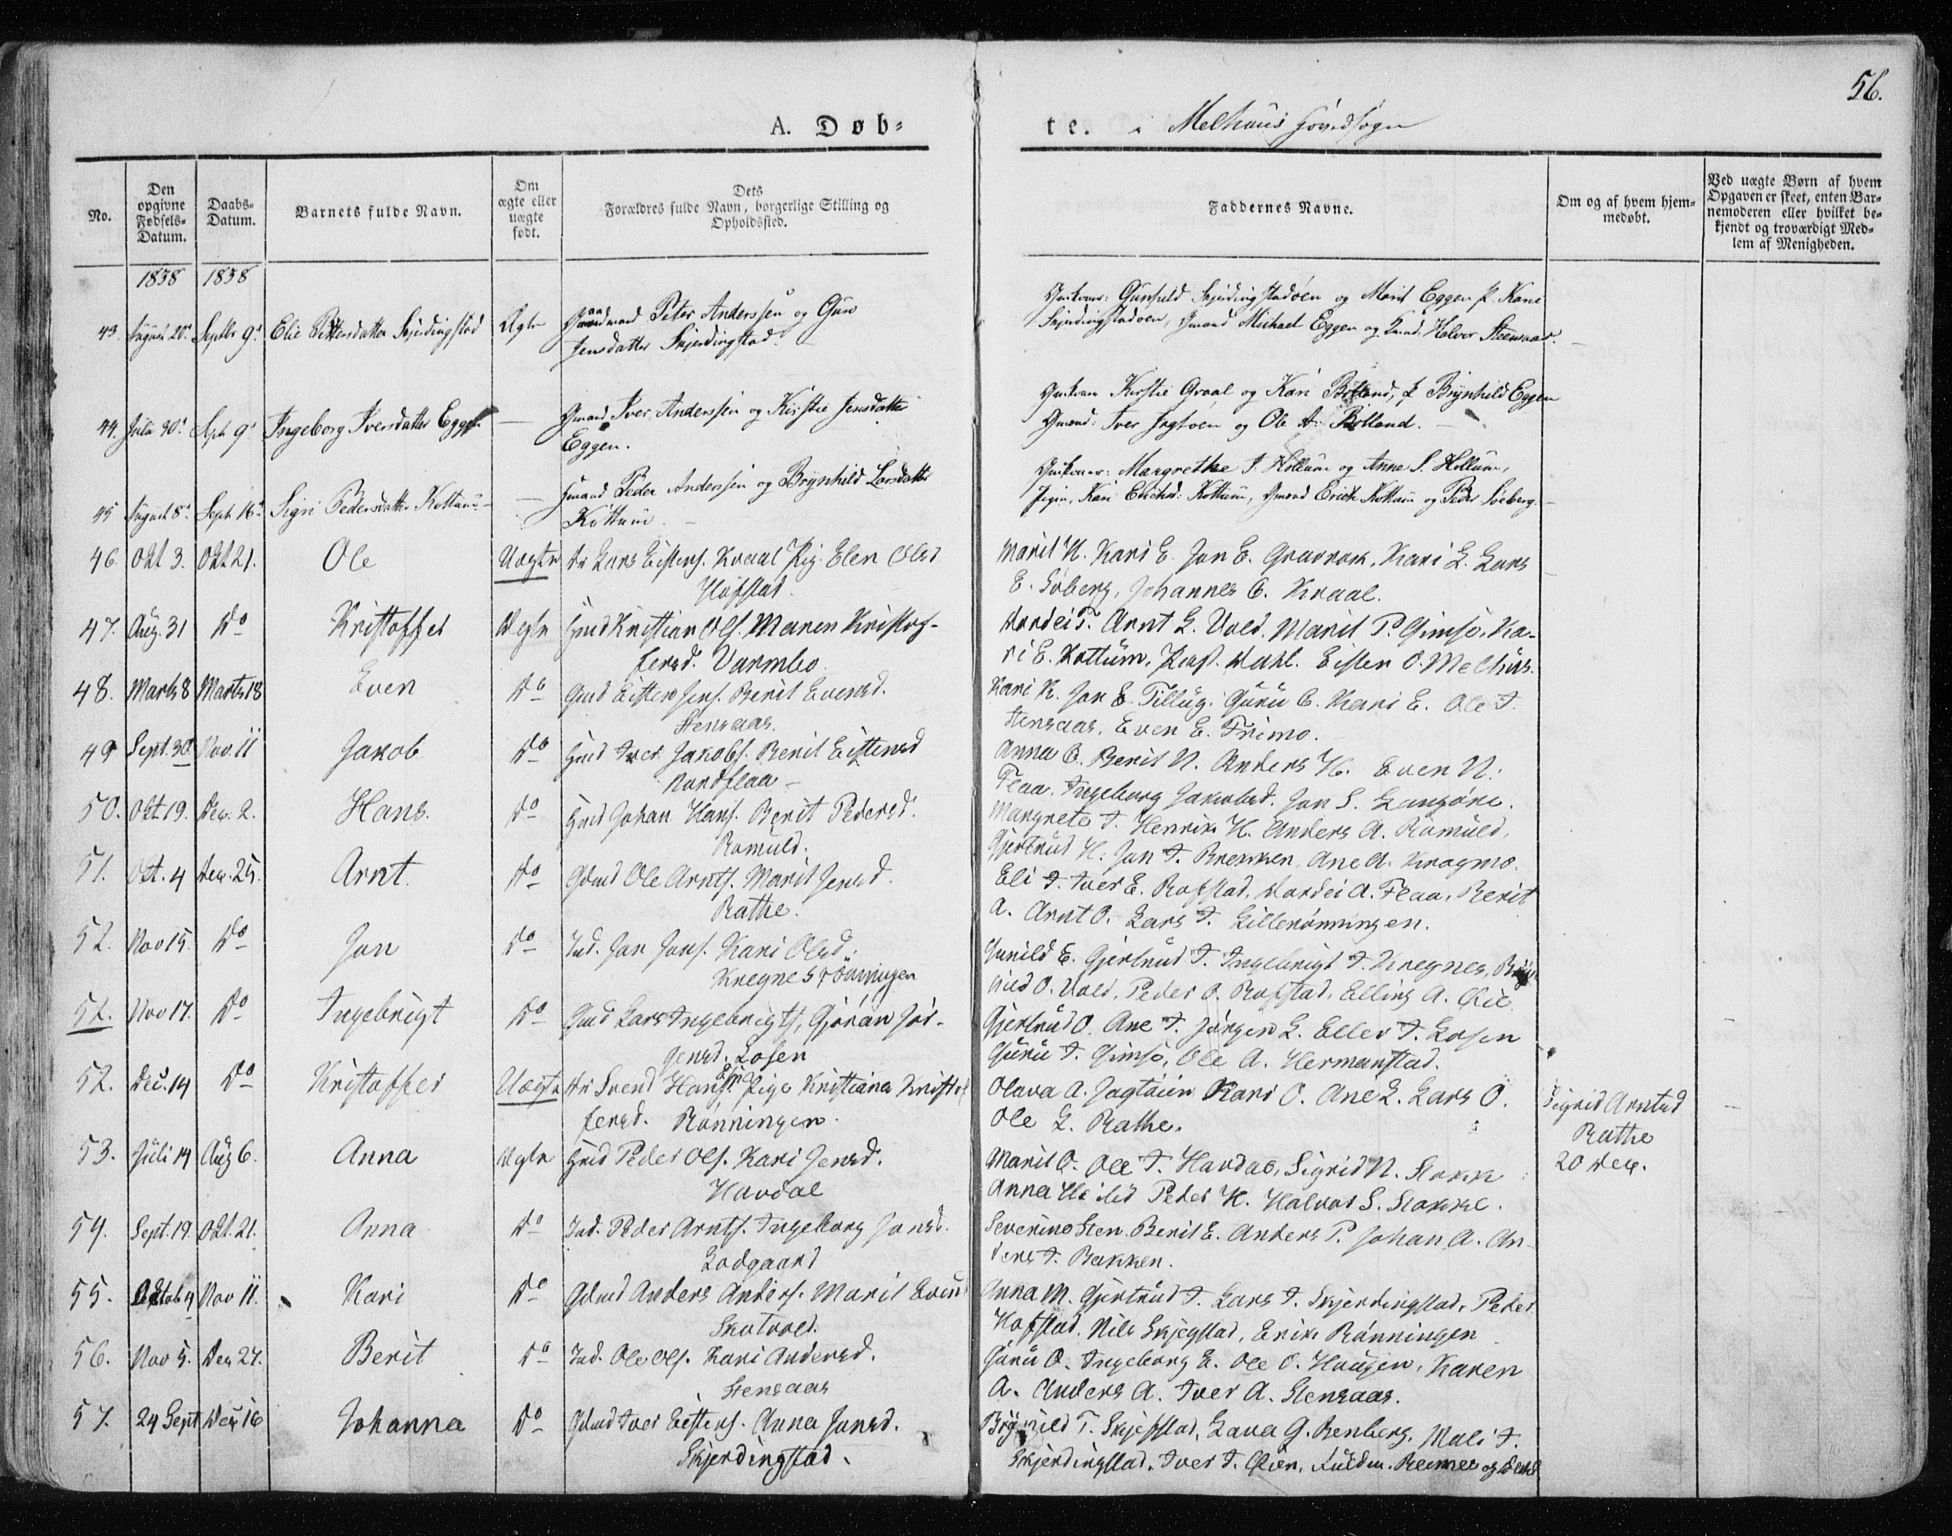 56.
A. Døb-te. i Melhuus Hovedsogn
No.
Den opgivne Fødsels-Datum.
Daabs-Datum.
Barnets fulde Navn.
Om ægte eller uægte født.
Dets Forældres fulde Navn, borgerlige Stilling og Opholdssted.
Faddernes Navne.
Om og af hvem hjem-medøbt.
Ved uægte Børn af hvem Opgaven er skeet, enten Bar-nemoderen eller hvilket be-kjendt og troværdigt Med-lem af Menigheden.
1838 1838
43. August 20de Septbr 9de Elie Pettersdatter Skjerdingstad Ægte Gaardmand Peter Anderssen og Guro
Jensdatter Skjerdingstad.
Gunhild Skjerdingstadøen og Marit Eggen P. Kari
Skjerdingstadøen, Gmand Michael Eggen og Halvor Steensaas.
44. Julii 30 Sept 9de Ingeborg Iversdatter Eggen — Gmand Iver Anderssen og Kirstie Jensdatter
Eggen.
Kirstie Graal og Kari Bolland, P. Brynhild Eggen
Gmand: Iver og Ole A. Bolland.
45 August 8de Sept 16de Sigri Pedersdatter Kottum — Gmand Peder Anderssen og Brynhild Larsdatter
Kottum.
Margrethe J. Hollum og Anne S. Hollum,
Kari Kottum, Gmand Erich Kottum og Peder Søeberg.
46. Okt 3. Okt 21. Ole Uægte Lars Eistens. Kvaal Pig. Elen Olsd
Hofstad.
Marit N. Kari E. Jon E. Gravrok. Kari L. Lars
E. Søberg, Johannes O. Kvaal.
47. Aug. 31 Do Kristoffer Ægte Gmd Kristian Ols. Maren Kristof-
fersd. Varmbo.
Arnt L. Vold. Marit P. Gimse. Ka-
ri E. Kottum, Dahl. Eisten O. Melhus.
48. Marts 8 Marts 18 Even Do Gmd Eisten Jens. Berit Evensd.
Stensaas.
Kari K. Jon E. Tillug. Guru O. Kari E. Ole J.
Stensaas. Even E. Frimo.
49 Sept. 30 Nov 11 Jakob Do Gmd Iver Jakobs. Berit Eistensd
Nordflaa
Anna O. Berit N. Anders H. Even N.
Flaa. Ingeborg Jakobsd. Jon S. Langøre.
50. Okt 19. Dec. 2. Hans. Do Gmd Johan Hans. Berit Pedersd.
Romuld.
Margrete J. Henrik H. Anders A. Romuld,
Gjertrud H. Jon J. Brekken, Ane A. Kragmo.
51. Oct. 4 Dec. 25. Arnt. Do Gdmd Ole Arnts. Marit Jensd.
Rathe.
Eli J. Iver E. Rofstad, Vardei A. Flaa. Berit
A. Arnt O. Lars J. Lillerønningen.
52. Nov 15. Do Jon Do Ind. Jon Jons. Kari Olsd.
Kregnesrønningen
Gunild E. Gjertrud J. Ingebrigt J. Kregnes,
O. Vold, Peder O. Rofstad, Elling A.
52. Nov 17. Do Ingebrigt Do Gmd Lars Ingebrigts, Gjøran Jør-
gensd. Losen
Gjertrud O. Ane J. Jørgen L. Eller J. Losen
Guru J. Gimse, Ole A. Hermanstad.
52. Dec. 14 Do Kristoffer Uægte Svend Hans. Pige Kristiana Kristof
fersd. Rønningen.
Olava A. Jagtøien Kari O. Ane L. Lars O.
Ole L. Rathe.
Sigrid Arntsd
Rathe
20 Dec.
53. Juli 14 Aug 6. Anna Ægte Gmd Peder Ols. Kari Jensd.
Havdal
Marit O. Ole J. Havdal, Sigrid N. Stokk
Anna Peder K. Halvor S. Stokke.
54. Sept. 19. Okt. 21. Anna Do Ind. Peder Arnts. Ingeborg Jonsd.
Lodgaard
Severine Sten Berit E. Anders P. Johan A. An-
ders J. Bakken.
55. Oktob 4 Nov 11. Kari Do Gdmd Anders Anders. Marit
Skotvold.
Anna M. Gjertrud J. Lars J. Skjerdingstad. Peder
Hofstad. Nils Skjegstad, Erik Rønningen
56. Nov 5. Dec 27. Berit Do Ind. Ole Ols. Kari Andersd.
Stensaas
Guru O. Ingeborg E. Ole O. Haugen, Karen
A. Anders A. Iver A. Stensaas.
57. 24 Sept Dec 16 Johanna Do Gdmd Iver Eistens. Anna Jonsd.
Skjerdingstad.
T. Skjefstad, Lava G. Renberg, Mali J.
Skjerdingstad. Iver J. Øien.